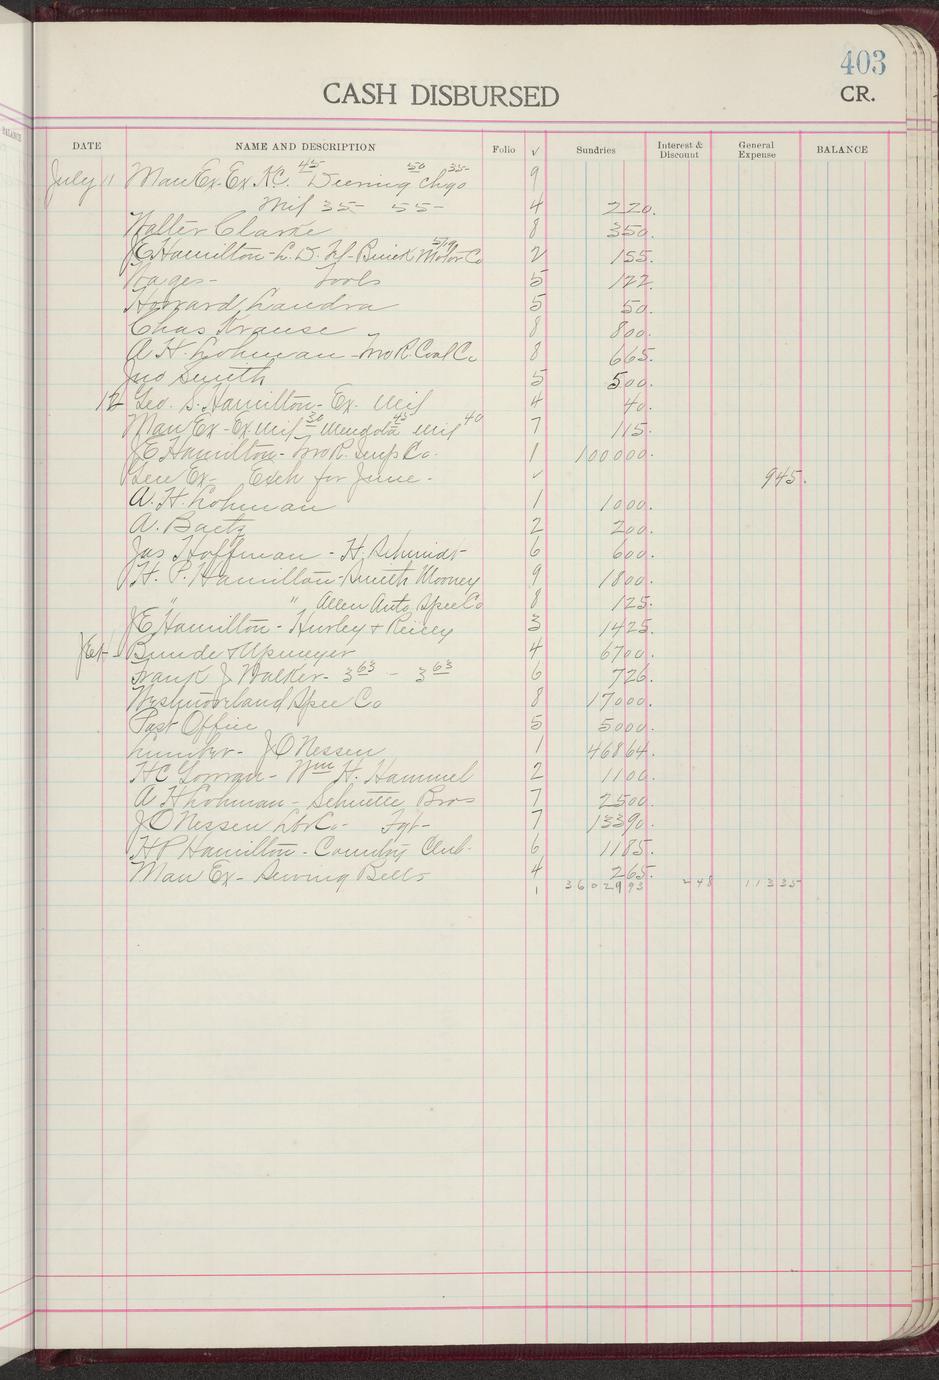 403
CASH DISBURSED CR.
DATE NAME AND DESCRIPTION Folio √ Sundries Interest & Discount General Expense BALANCE
July 11 Man Ex. Ex. N.C. 45 Deering 50 Chgo 35- 9
Mil 35- 55- 4 220.
Walter Clarke 8 350.
JE Hamilton - L. D. Buick Motor Co 2 155.
Wages - Tools 5 122.
Howard Landra 5 50.
Chas Krause 8 800.
A H. Lohman - Mo R. Coal Co 8 665.
Jno Smith 5 500.
12 Geo. S. Hamilton - Ex. Mil 4 40.
Man Ex - Ex Mil 30 Mendota 45 Mil 40 7 115.
JE Hamilton - Mo R. Co. 1 100000.
Gen Ex - Exch for June - √ 945.
A. H. Lohman 1 1000.
A. Baetz 2 200.
Jas Hoffman - H. Schmidt - 6 600.
H. P. Hamilton - Smith Mooney 9 1800.
" " Allen Auto Spec Co 8 125.
JE Hamilton - Hurley & Reilly 3 1425.
Bunde & Upmeyer 4 6700.
Frank J Walker - 3 63 - 3 63 6 726.
Westmorland Spec Co 8 17000.
Post Office 5 5000.
Lumber - J O Nessen 1 46864.
HC Gorman - Wm H. Hammel 2 1100.
A H Lohman - Schuette Bros 7 2500.
J O Nessen Lbr Co - Fgt - 7 13390.
H P Hamilton - Country Club - 6 1185.
Man Ex - Sewing Belts 4 265.
1 36029 93 2 48 113 35